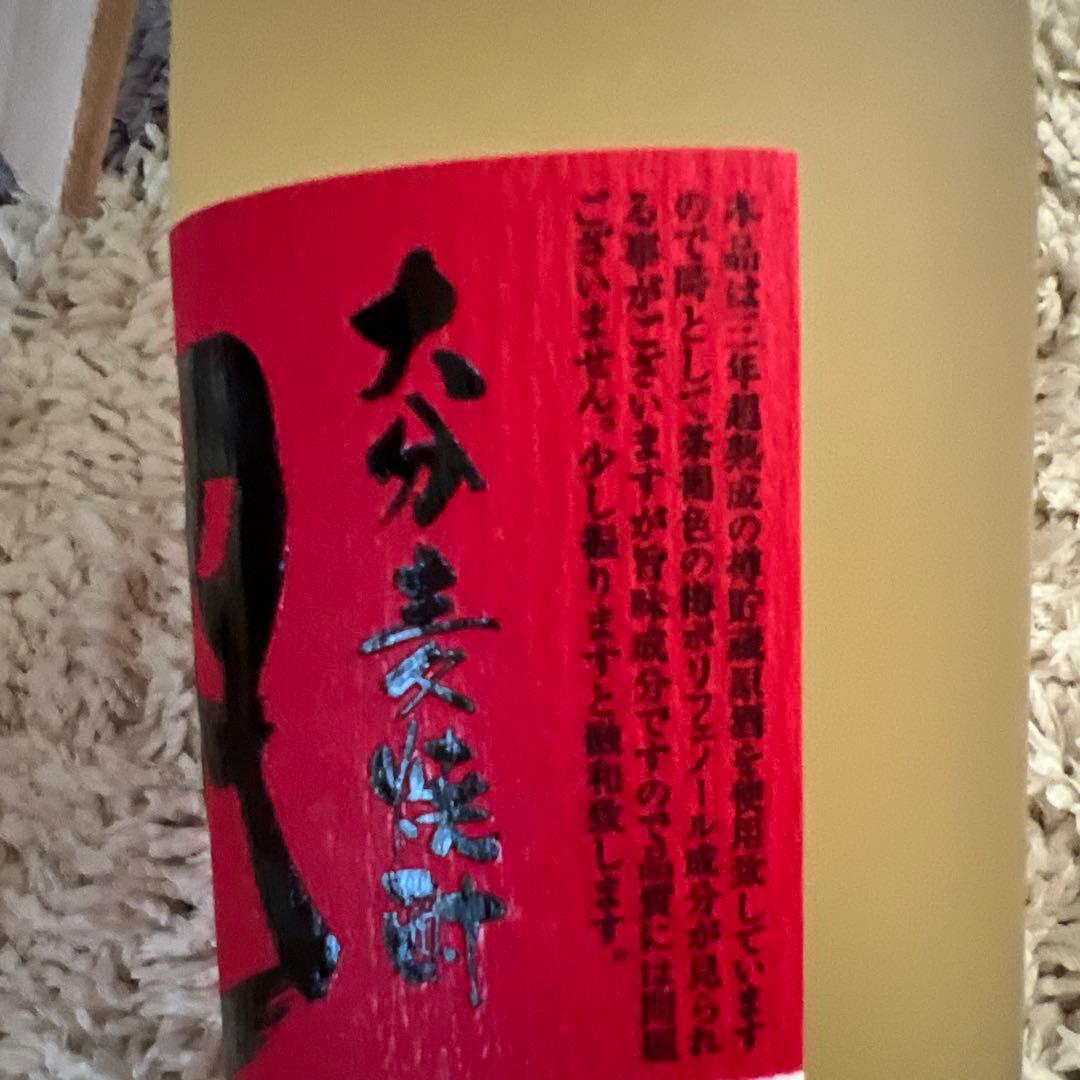 本品は三年超熟成の樽貯蔵原酒を使用致しています
ので時として茶褐色の樽ポリフェノール成分が見られ
る事がございますが旨味成分ですので品質には問題
ございません。少し振りますと融和致します。
大分麦焼酎